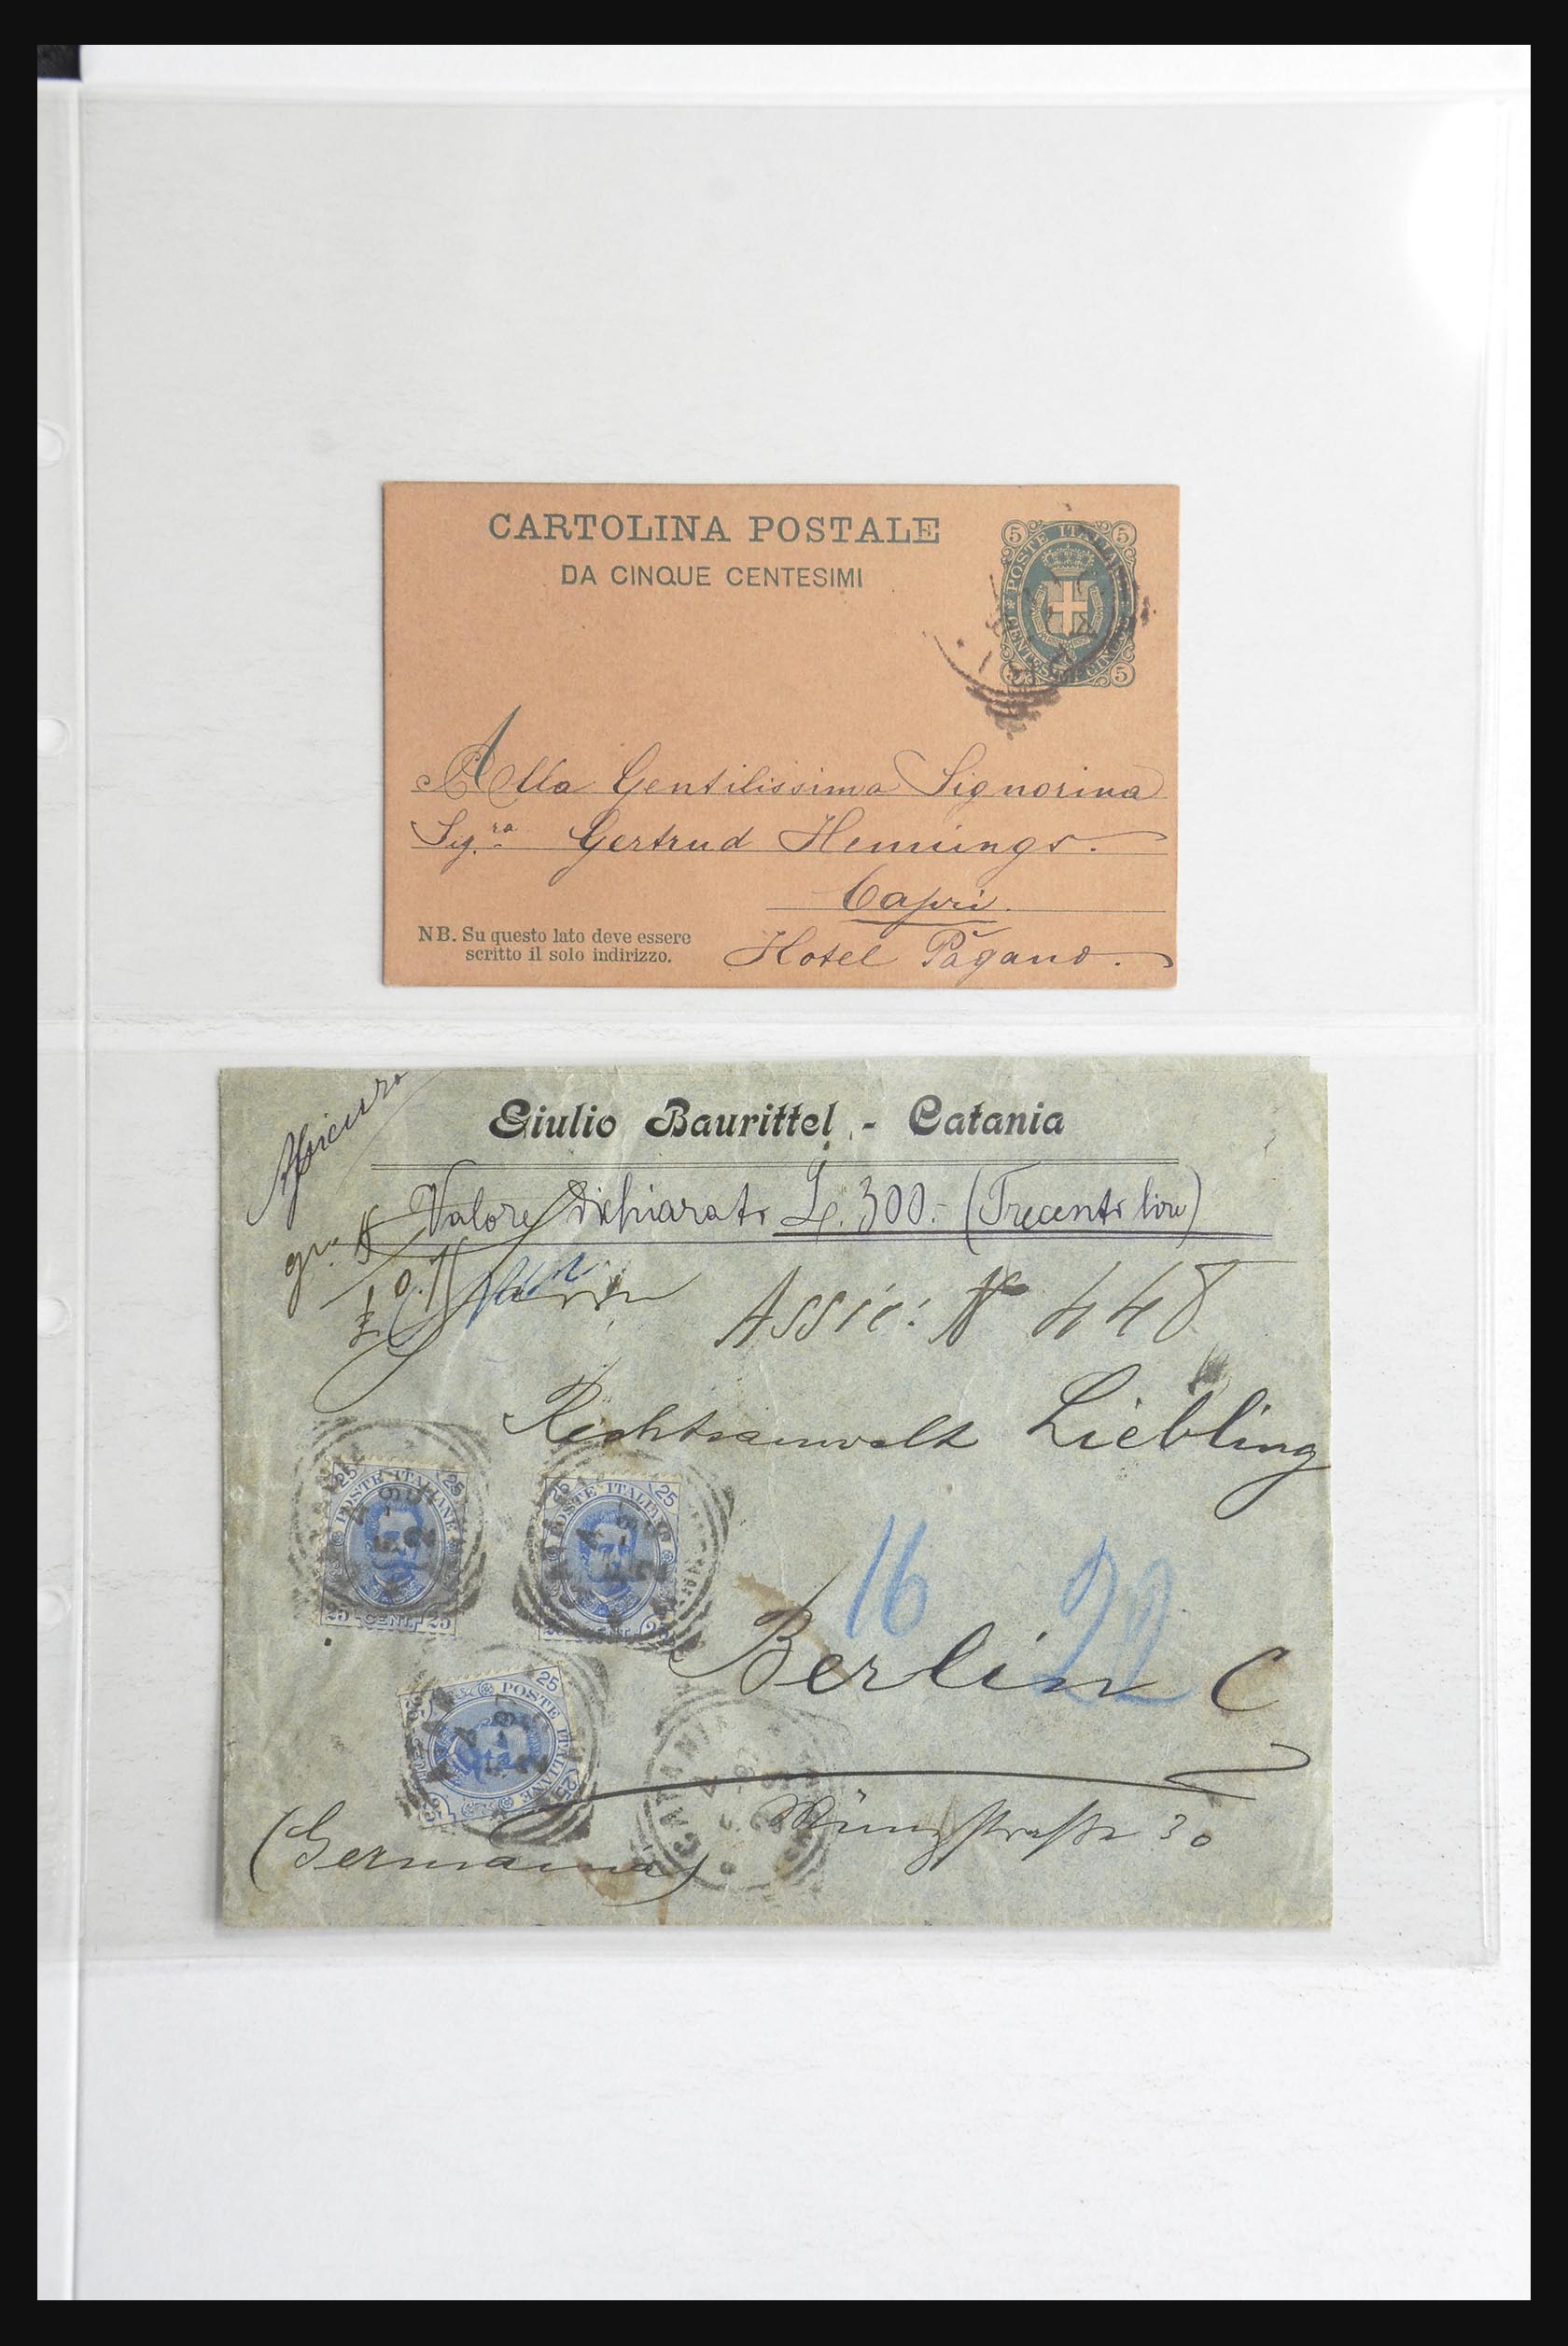 CARTOLINA POSTALE
DA CINQUE CENTESIMI
5 5
POSTE ITALIANE
5
Alla Gentilissima Signorina
Sig.ra Gertrud Hennings.
Capri.
NB. Su questo lato deve essere
scritto il solo indirizzo.
Hotel Pagano.
Giulio Baurittel - Catania
Valore dichiarato L. 300.- (Trecento lire)
gr.
Assic: N 448
Rechtsanwalt Liebling
25 POSTE ITALIANE 25
25 CENT. 25
25 POSTE ITALIANE 25
CENT. 25
16 22
Berlin C
25 POSTE ITALIANE 25
CATANIA
Münzstraße 30
(Germania)